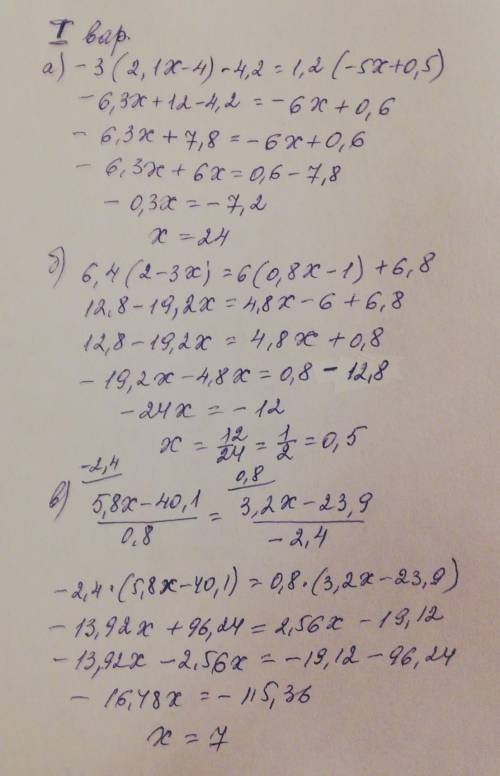 I вар.
а) -3(2,1x-4)-4,2=1,2(-5x+0,5)
-6,3x+12-4,2=-6x+0,6
-6,3x+7,8=-6x+0,6
-6,3x+6x=0,6-7,8
-0,3x=-7,2
x=24
б) 6,4(2-3x)=6(0,8x-1)+6,8
12,8-19,2x=4,8x-6+6,8
12,8-19,2x=4,8x+0,8
-19,2x-4,8x=0,8-12,8
-24x=-12
x=12/24=1/2=0,5
-2,4 0,8
в) 5,8x-40,1/0,8=3,2x-23,9/-2,4
-2,4·(5,8x-40,1)=0,8·(3,2x-23,9)
-13,92x+96,24=2,56x-19,12
-13,92x-2,56x=-19,12-96,24
-16,48x=-115,36
x=7